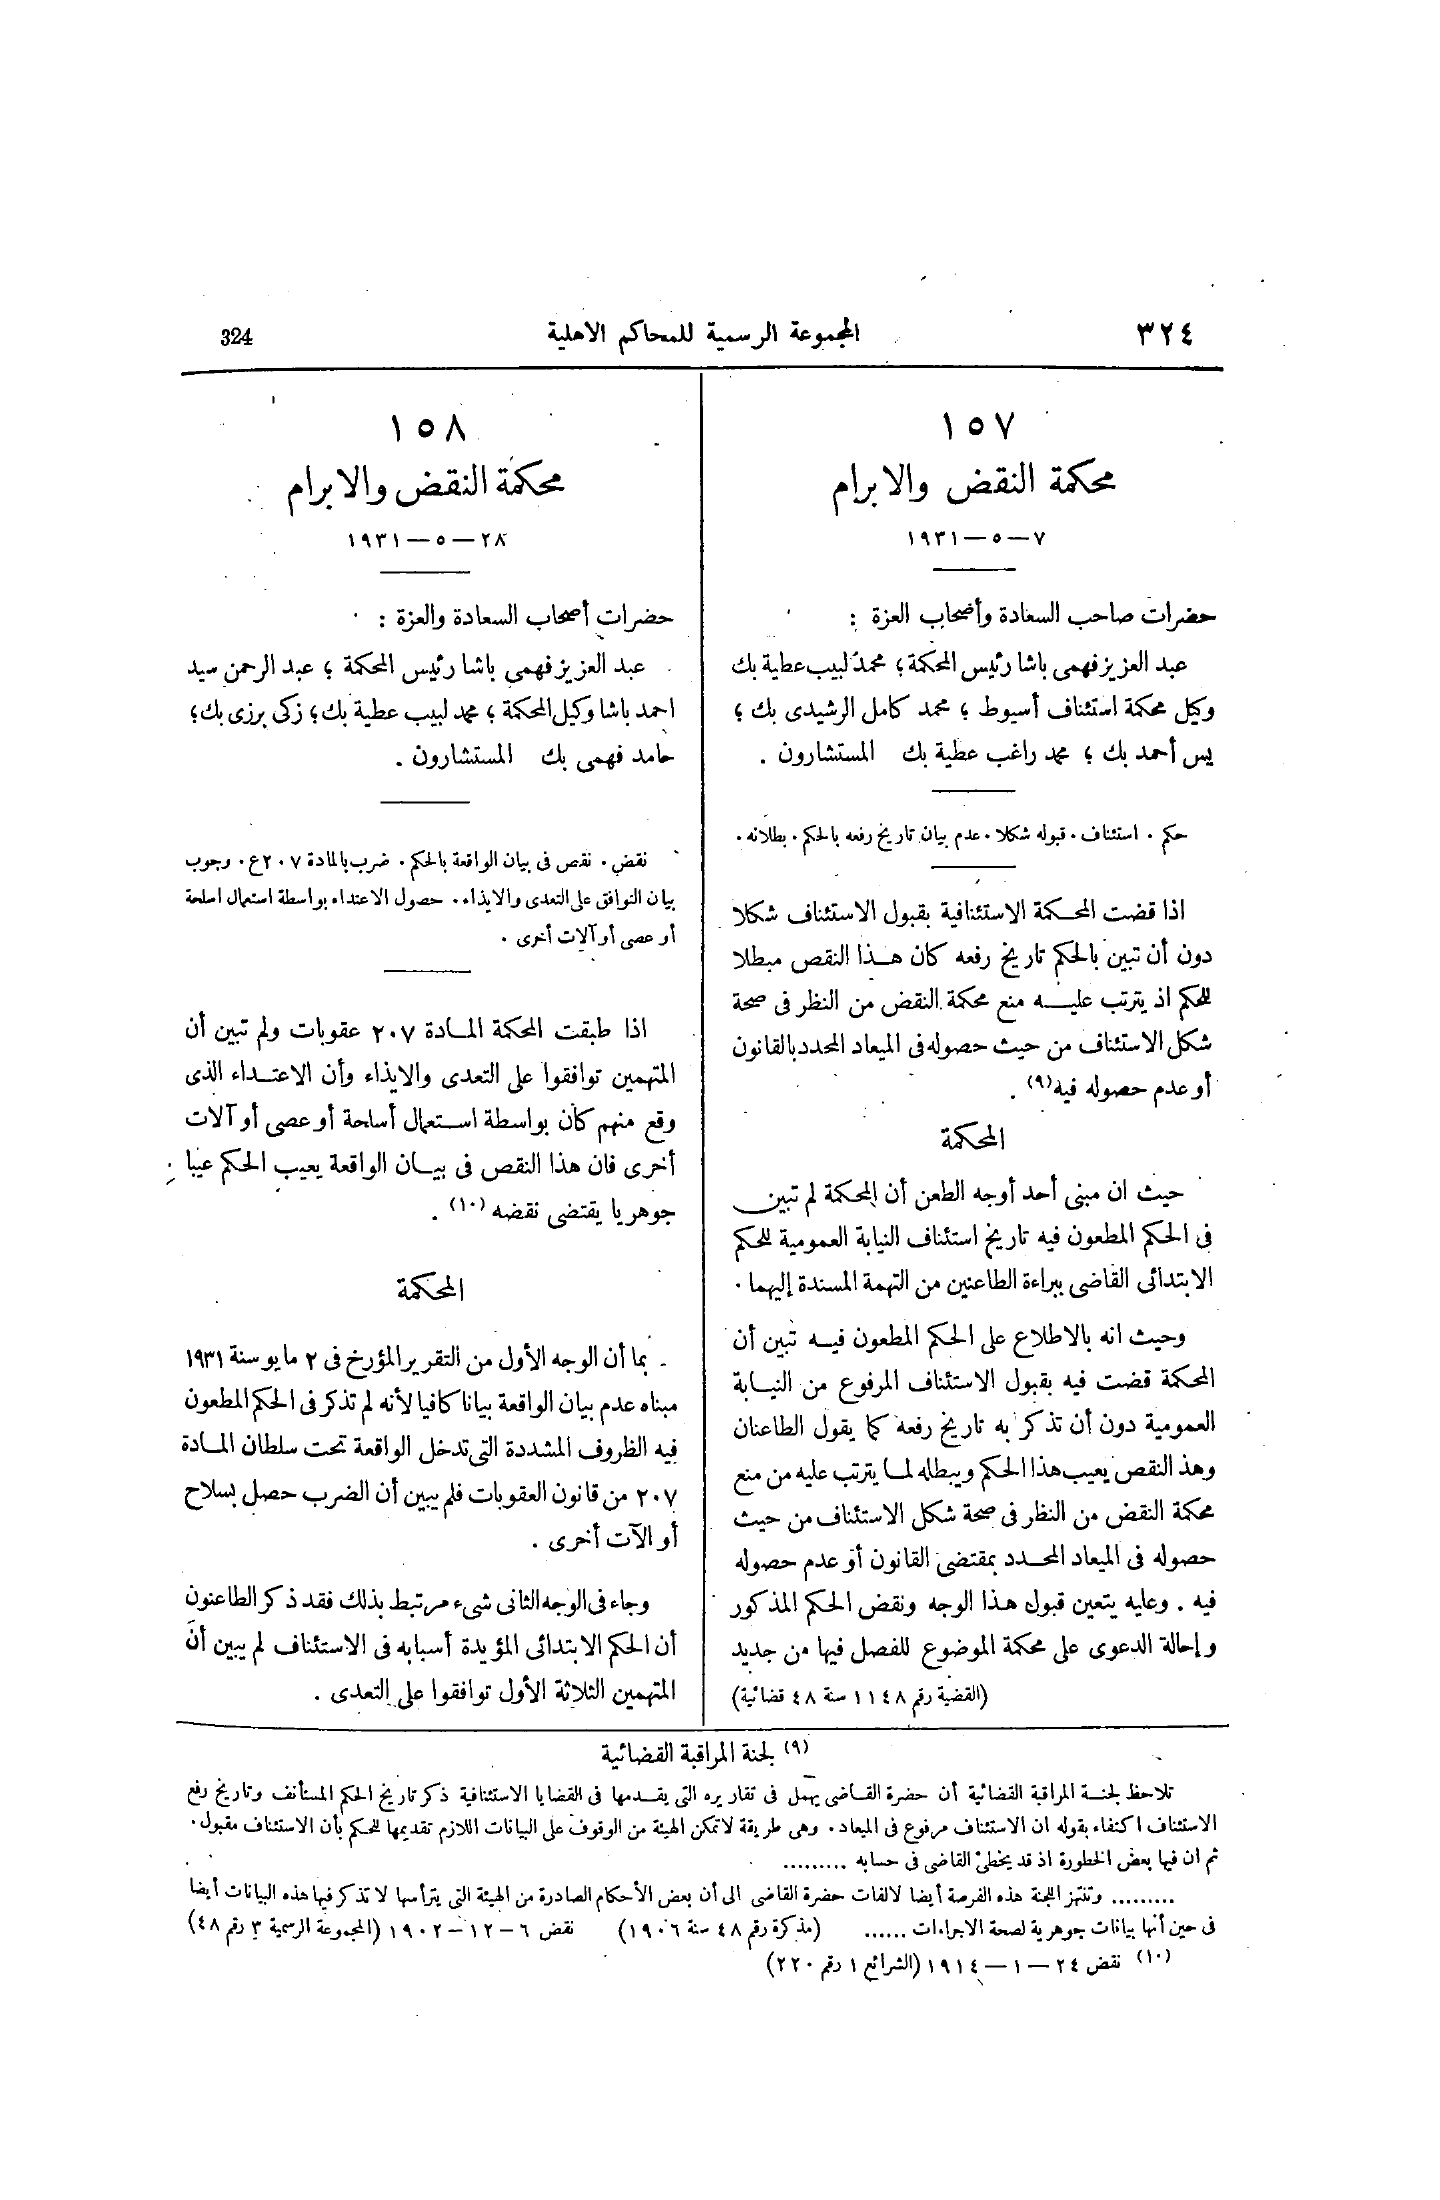 ٣٢٤
المجموعة الرسمية للمحاكم الاهلية
324
١٥٧
محكمة النقض والابرام
٧ — ٥ — ١٩٣١
حضرات صاحب السعادة وأصحاب العزة :
عبد العزيز فهمى باشا رئيس المحكمة ؛ محمد لبيب عطية بك
وكيل محكمة استئناف أسيوط ؛ محمد كامل الرشيدى بك ؛
يس أحمد بك ؛ محمد راغب عطية بك المستشارون .
حكم . استئناف . قبوله شكلا . عدم بيان تاريخ رفعه بالحكم . بطلانه .
اذا قضت المحكمة الاستئنافية بقبول الاستئناف شكلا
دون أن تبين بالحكم تاريخ رفعه كان هذا النقص مبطلا
للحكم اذ يترتب عليه منع محكمة النقض من النظر فى صحة
شكل الاستئناف من حيث حصوله فى الميعاد المحدد بالقانون
أو عدم حصوله فيه (٩) .
المحكمة
حيث ان مبنى أحد أوجه الطعن أن المحكمة لم تبين
فى الحكم المطعون فيه تاريخ استئناف النيابة العمومية للحكم
الابتدائى القاضى ببراءة الطاعنين من التهمة المسندة إليهما .
وحيث انه بالاطلاع على الحكم المطعون فيه تبين أن
المحكمة قضت فيه بقبول الاستئناف المرفوع من النيابة
العمومية دون أن تذكر به تاريخ رفعه كما يقول الطاعنان
وهذ النقص يعيب هذا الحكم ويبطله لما يترتب عليه من منع
محكمة النقض من النظر فى صحة شكل الاستئناف من حيث
حصوله فى الميعاد المحدد بمقتضى القانون أو عدم حصوله
فيه . وعليه يتعين قبول هذا الوجه ونقض الحكم المذكور
وإحالة الدعوى على محكمة الموضوع للفصل فيها من جديد
(القضية رقم ١١٤٨ سنة ٤٨ قضائية)
١٥٨
محكمة النقض والابرام
٢٨ — ٥ — ١٩٣١
حضرات أصحاب السعادة والعزة :
عبد العزيز فهمى باشا رئيس المحكمة ؛ عبد الرحمن سيد
احمد باشا وكيل المحكمة ؛ محمد لبيب عطية بك ؛ زكى برزى بك ؛
حامد فهمى بك المستشارون .
نقض . نقص فى بيان الواقعة بالحكم . ضرب بالمادة ٢٠٧ ع . وجوب
بيان التوافق على التعدى والايذاء . حصول الاعتداء بواسطة استعمال اسلحة
أو عصى أو آلات أخرى .
اذا طبقت المحكمة المادة ٢٠٧ عقوبات ولم تبين أن
المتهمين توافقوا على التعدى والايذاء وأن الاعتداء الذى
وقع منهم كان بواسطة استعمال أسلحة أو عصى أو آلات
أخرى فان هذا النقص فى بيان الواقعة يعيب الحكم عيبا
جوهريا يقتضى نقضه (١٠) .
المحكمة
بما أن الوجه الأول من التقرير المؤرخ فى ٢ مايو سنة ١٩٣١
مبناه عدم بيان الواقعة بيانا كافيا لأنه لم تذكر فى الحكم المطعون
فيه الظروف المشددة التى تدخل الواقعة تحت سلطان المادة
٢٠٧ من قانون العقوبات فلم يبين أن الضرب حصل بسلاح
أو الآت أخرى .
وجاء فى الوجه الثانى شىء مرتبط بذلك فقد ذكر الطاعنون
أن الحكم الابتدائى المؤيدة أسبابه فى الاستئناف لم يبين أن
المتهمين الثلاثة الأول توافقوا على التعدى .
(٩) لجنة المراقبة القضائية
تلاحظ لجنة المراقبة القضائية أن حضرة القاضى يهمل فى تقاريره التى يقدمها فى القضايا الاستئنافية ذكر تاريخ الحكم المستأنف وتاريخ رفع
الاستئناف اكتفاء بقوله ان الاستئناف مرفوع فى الميعاد . وهى طريقة لا تمكن الهيئة من الوقوف على البيانات اللازم تقديمها للحكم بأن الاستئناف مقبول .
ثم ان فيها بعض الخطورة اذ قد يخطئ القاضى فى حسابه .........
......... وتنتهز اللجنة هذه الفرصة أيضا لالفات حضرة القاضى الى أن بعض الأحكام الصادرة من الهيئة التى يترأسها لا تذكر فيها هذه البيانات أيضا
فى حين أنها بيانات جوهرية لصحة الاجراءات ...... (مذكرة رقم ٤٨ سنة ١٩٠٦) نقض ٦ — ١٢ — ١٩٠٢ (المجموعة الرسمية ٣ رقم ٤٨)
(١٠) نقض ٢٤ — ١ — ١٩١٤ (الشرائع ١ رقم ٢٢٠)